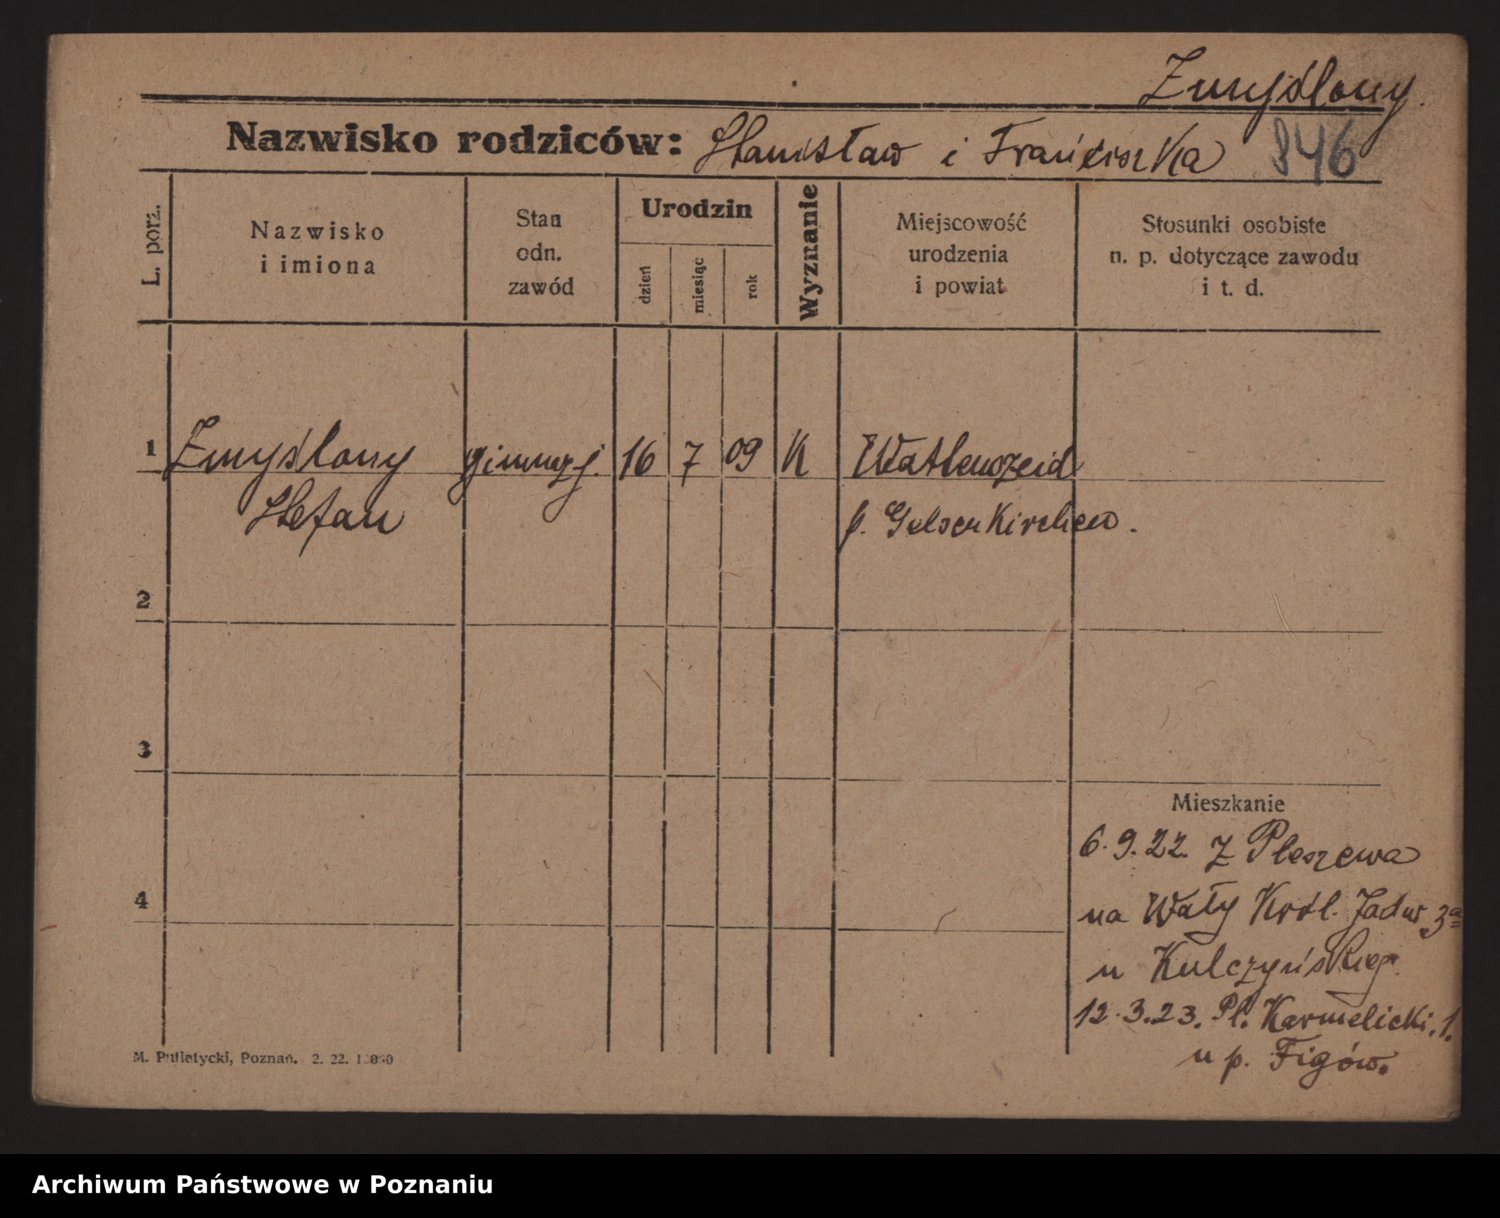 Zmyślony
Nazwisko rodziców: Stanisław i Franciszka 846
L. porz.
Nazwisko
i imiona
Stan
odn.
zawód
Urodzin
dzień
miesiąc
rok
Wyznanie
Miejscowość
urodzenia
i powiat
Stosunki osobiste
n. p. dotyczące zawodu
i t. d.
1 Zmyślony gimnazj. 16 7 09 K
Stefan p. Gelsenkirchen.
2
3
Mieszkanie
6.9.22. Z Pleszewa
4
na Wały Król. Jadw. 3a
u Kulczyńskiego
12.3.23. Pl. Karmelicki. 1.
u p. Figów.
M. Putiatycki, Poznań. 2. 22.
Archiwum Państwowe w Poznaniu